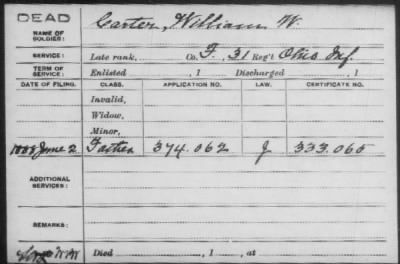 DEAD
NAME OF SOLDIER: Carter, William W.
SERVICE: Late rank, Co. F, 31 Reg't Ohio Inf.
TERM OF SERVICE: Enlisted , 1 Discharged , 1
DATE OF FILING. CLASS. APPLICATION NO. LAW. CERTIFICATE NO.
Invalid,
Widow,
Minor,
1888 June 2 Father 374.062 J 333.065
ADDITIONAL SERVICES:
REMARKS:
Died , 1 , at